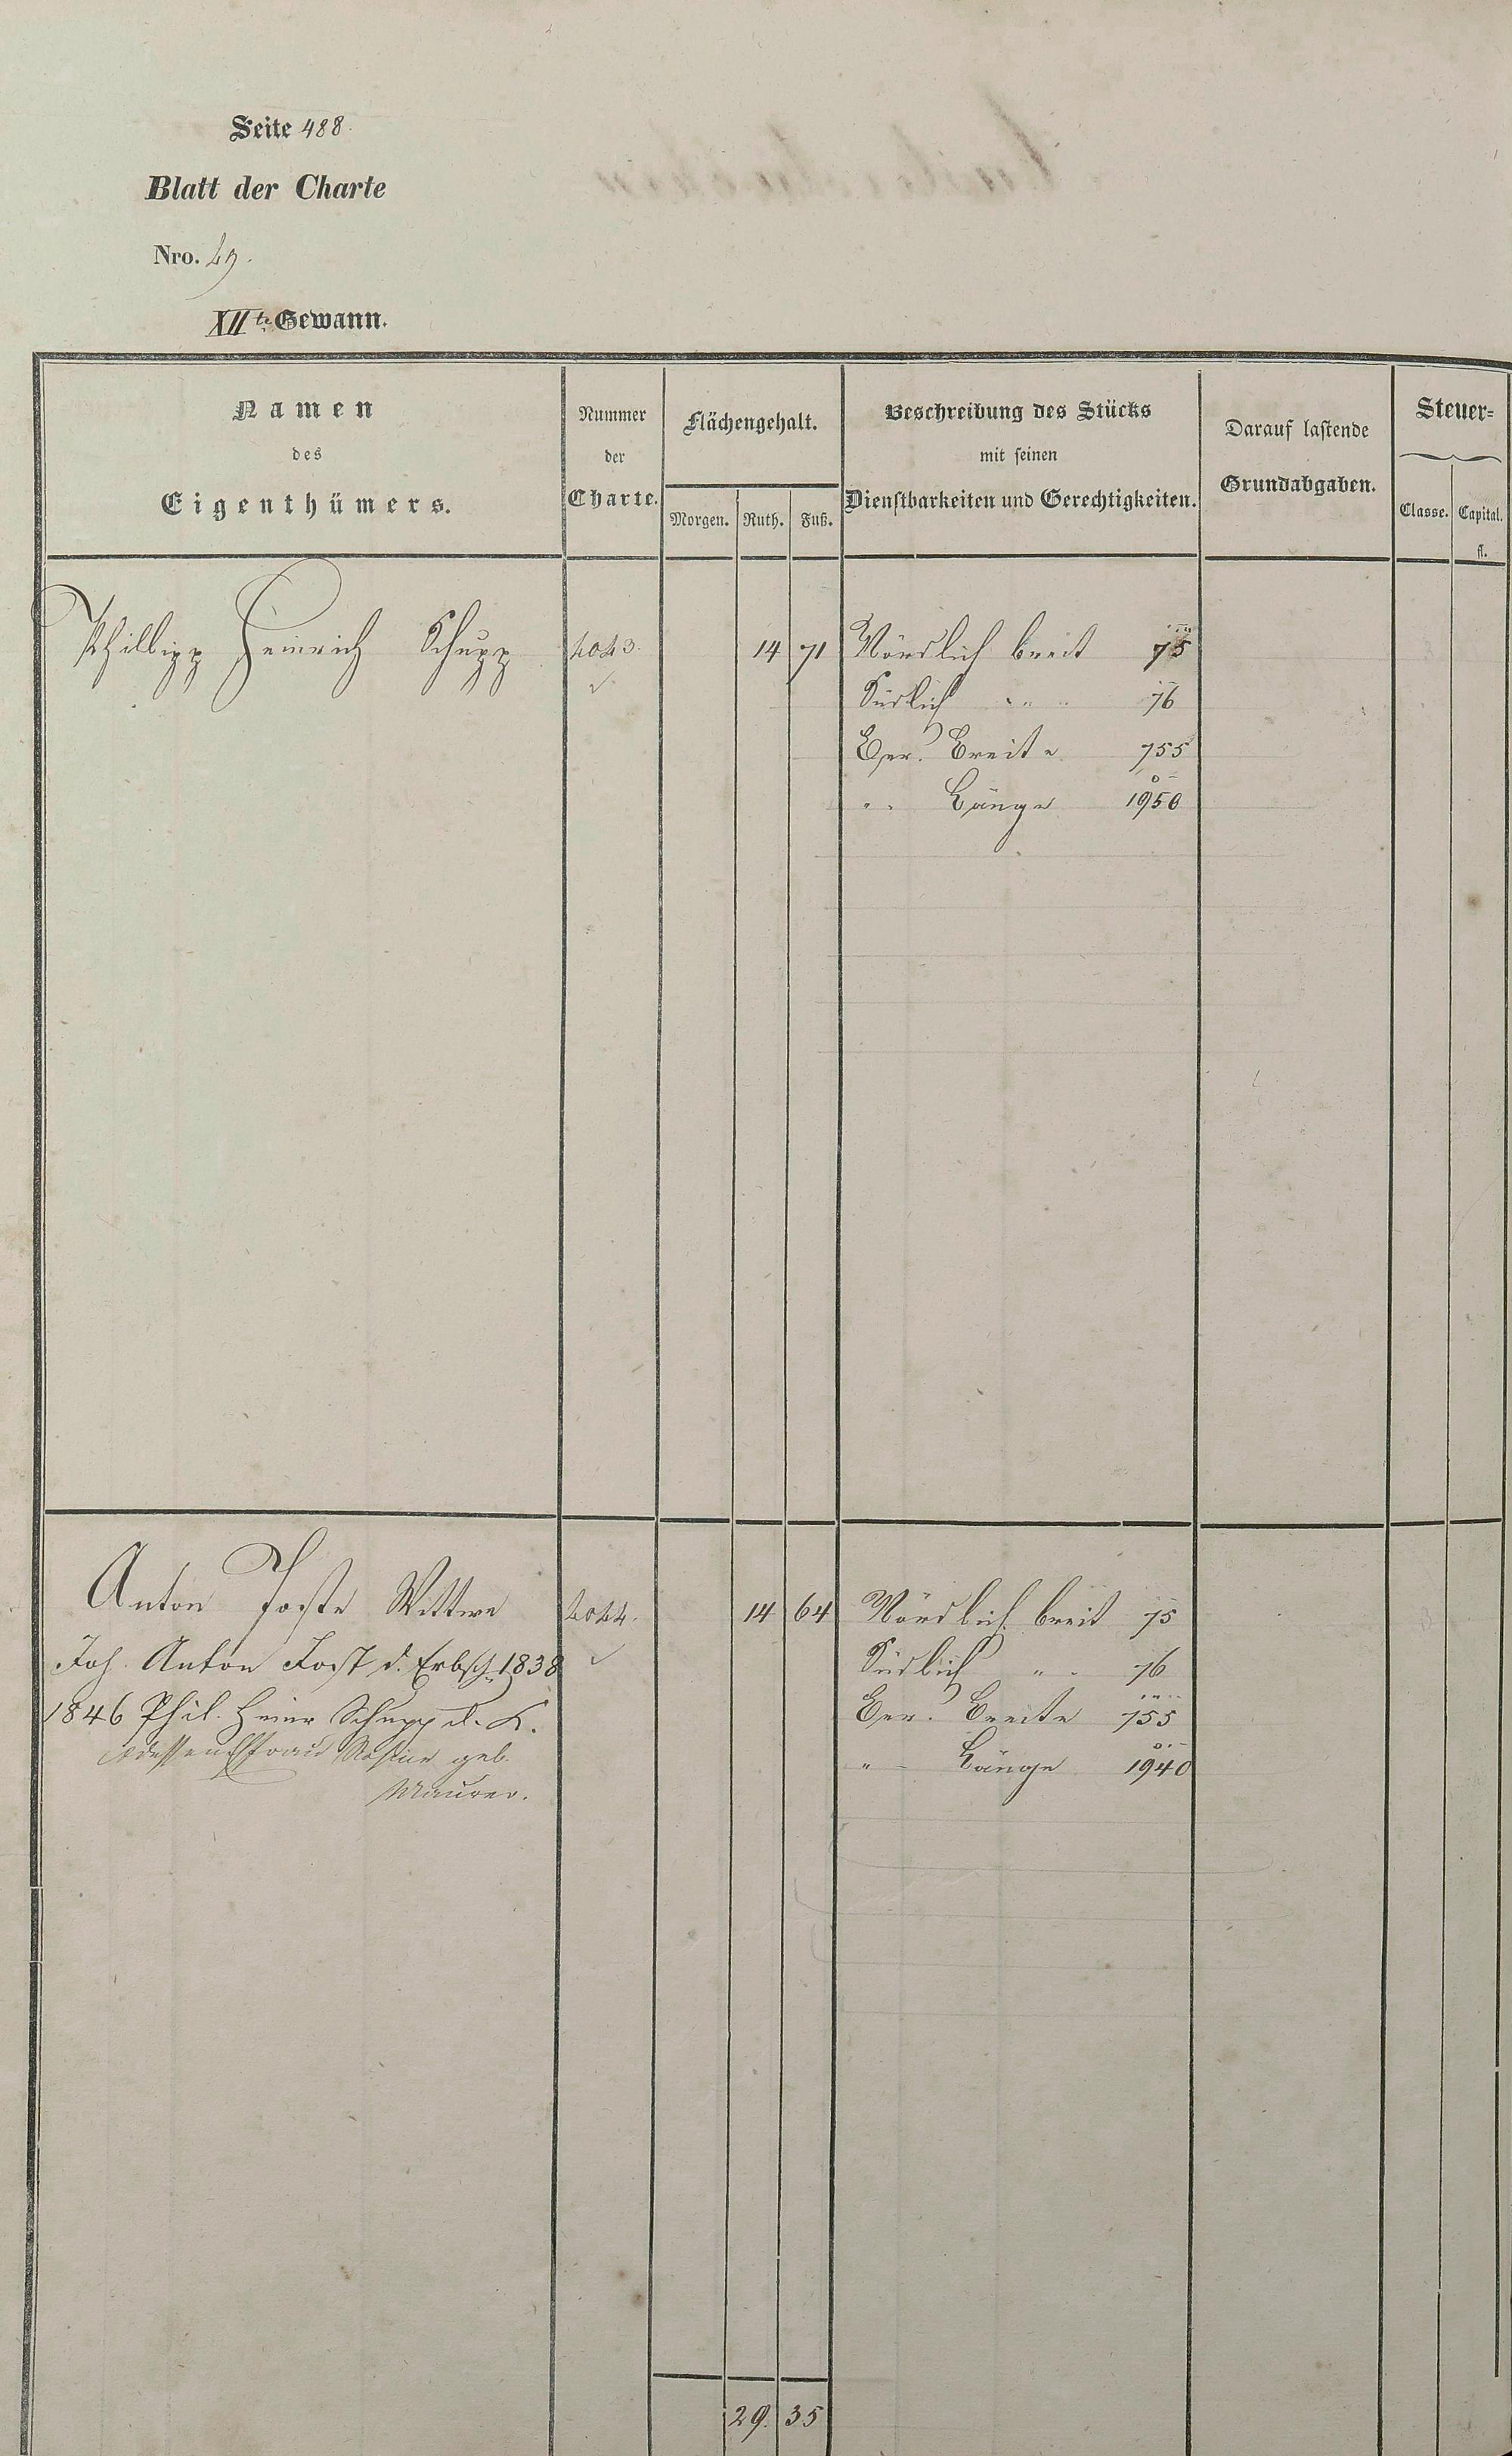 Seite 488.
Blatt der Charte
Nro. 49.
XIIte Gewann.
Namen
des
Eigenthümers.
Nummer
der
Charte.
Flächengehalt.
Morgen. Ruth. Fuß.
Beschreibung des Stücks
mit seinen
Dienstbarkeiten und Gerechtigkeiten.
Darauf lastende
Grundabgaben.
Steuer-
Classe. Capital.
fl.
Phillipp Heinrich Schupp 4043. 14 71 Nördlich breit 75
Südlich " " 76
Ber. Breite 755
" Länge 1950
Anton Forste Wittwe 4044. 14 64 Nördlich breit 75
Joh. Anton Forst d. Erbsch. 1838 Südlich " " 76
1846 Phil. Heinr Schupp d. K. Ber. Breite 755
dessen Ehfrau Rosine geb. " Länge 1940
Maurer.
29. 35